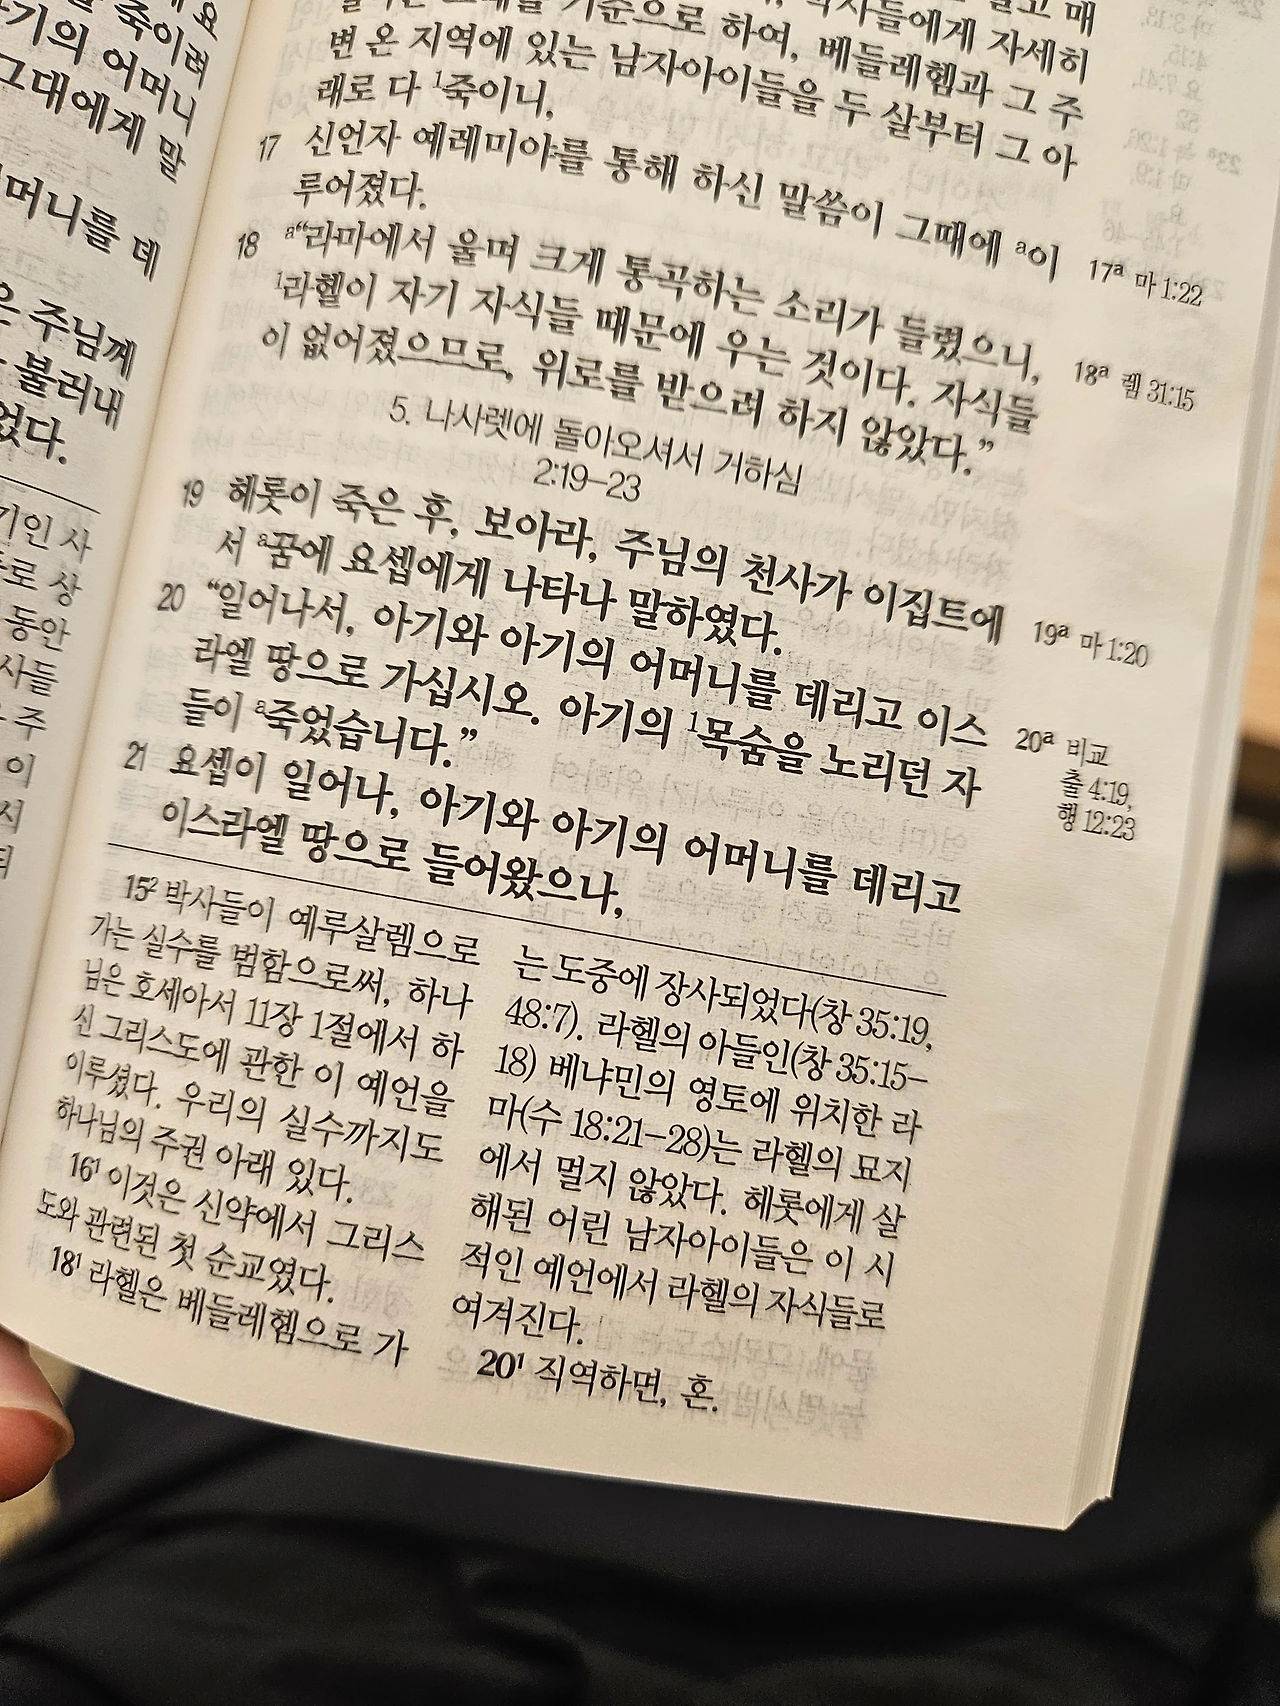 요
죽이려
기의 어머니
그대에게 말
머니를 데
은 주님께
불러내
었다.
기인 사
로 상
동안
사들
주
이
시
기준으로 하여, 박사들에게 자세히
변 온 지역에 있는 남자아이들을 두 살부터 그 아
베들레헴과 그 주
래로 다 ¹죽이니,
17 신언자 예레미야를 통해 하신 말씀이 그때에 ᵃ이
루어졌다.
18 ᵃ“라마에서 울며 크게 통곡하는 소리가 들렸으니,
¹라헬이 자기 자식들 때문에 우는 것이다. 자식들
이 없어졌으므로, 위로를 받으려 하지 않았다.”
5. 나사렛에 돌아오셔서 거하심
2:19–23
19 헤롯이 죽은 후, 보아라, 주님의 천사가 이집트에
서 ᵃ꿈에 요셉에게 나타나 말하였다.
20 “일어나서, 아기와 아기의 어머니를 데리고 이스
라엘 땅으로 가십시오. 아기의 ¹목숨을 노리던 자
들이 ᵃ죽었습니다.”
21 요셉이 일어나, 아기와 아기의 어머니를 데리고
이스라엘 땅으로 들어왔으나,
17ᵃ 마 1:22
18ᵃ 렘 31:15
19ᵃ 마 1:20
20ᵃ 비교
출 4:19,
행 12:23
15² 박사들이 예루살렘으로
가는 실수를 범함으로써, 하나
님은 호세아서 11장 1절에서 하
신 그리스도에 관한 이 예언을
이루셨다. 우리의 실수까지도
하나님의 주권 아래 있다.
16¹ 이것은 신약에서 그리스
도와 관련된 첫 순교였다.
18¹ 라헬은 베들레헴으로 가
는 도중에 장사되었다(창 35:19,
48:7). 라헬의 아들인(창 35:15–
18) 베냐민의 영토에 위치한 라
마(수 18:21–28)는 라헬의 묘지
에서 멀지 않았다. 헤롯에게 살
해된 어린 남자아이들은 이 시
적인 예언에서 라헬의 자식들로
여겨진다.
20¹ 직역하면, 혼.